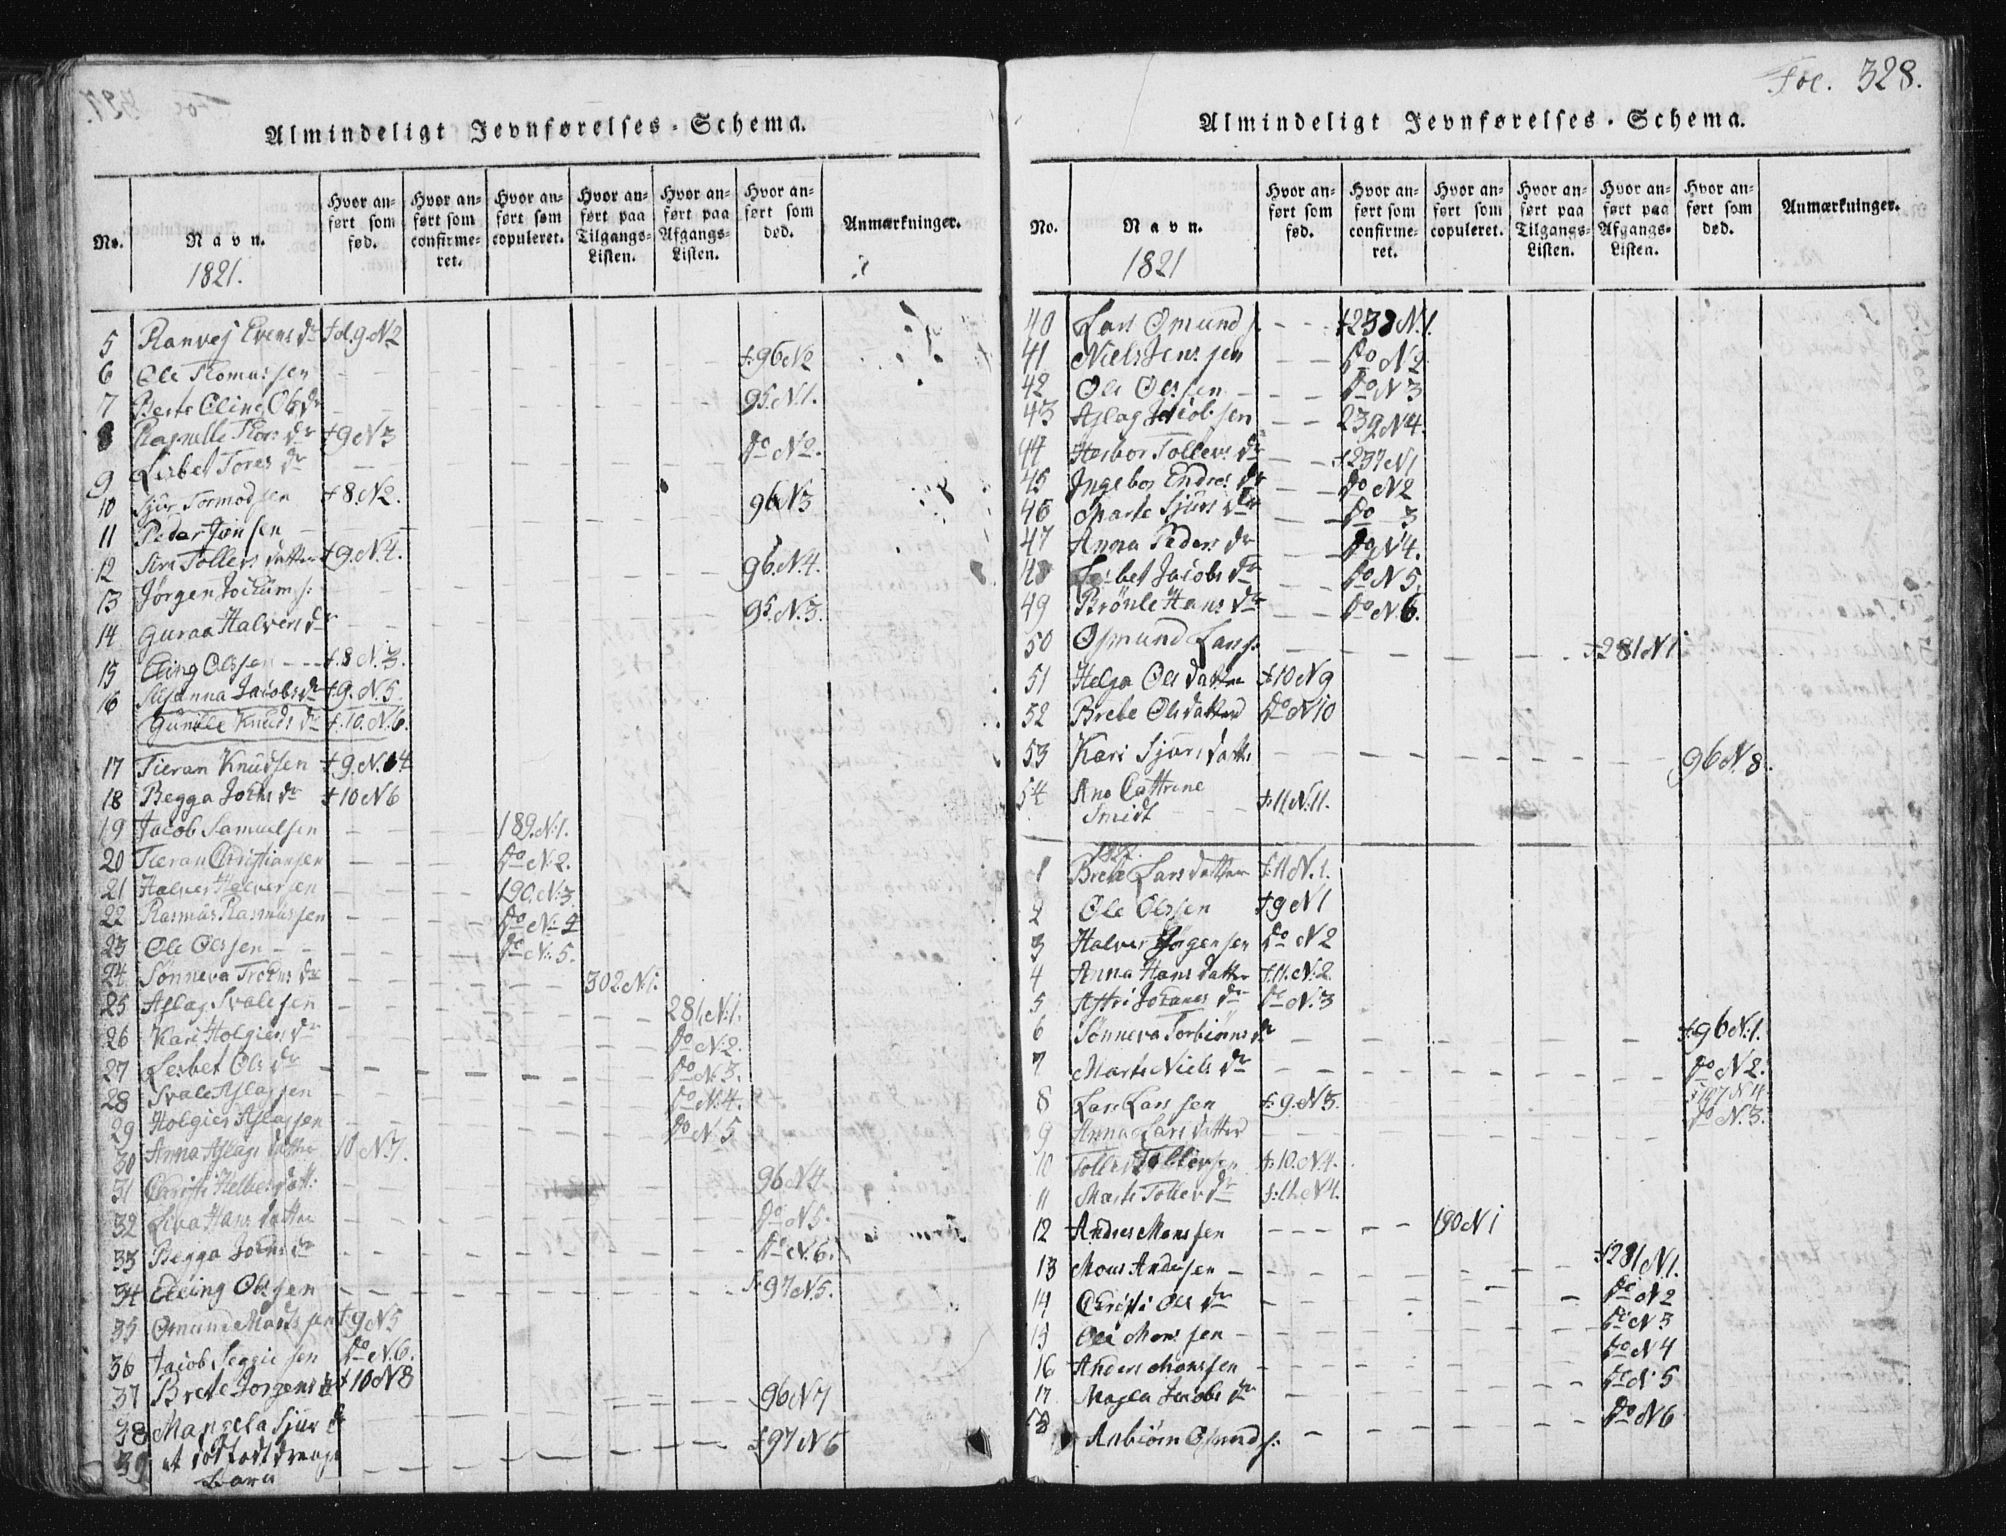 Almindeligt Jevnførelses-Schema.
No. Navn. 1821. Hvor anført som fød. Hvor anført som confirmeret. Hvor anført som copuleret. Hvor anført paa Tilgangs-Listen. Hvor anført paa Afgangs-Listen. Hvor anført som død. Anmærkninger.
5 Ranvej Evens Dr fol. 9 N2
6 Ole Thomassen f. 96 N2
7 Berte Oline Ols Dr 95. N.1.
8 Ragnille Thors Dr f 9 N 3
9 Lisbet Tores Dr Do No.
10 Sjur Tormodsen f 8. N2.
11 Peder Jonsen 96 N3
12 Siri Tollefs datter f 9. N. 4.
13 Jørgen Jochums: 96. N.4.
14 Guraa Halvers Dr 95. N.3.
15 Elling Olssen f. 8 N. 3.
16 Susanna Jacobs Dr f. 9. N.5.
Gunille Knuds Dr f. 10. N.6.
17 Tieran Knudsen f. 9. N. 4
18 Begga Johns Dr f 10 N 6
19 Jacob Samuelsen 189. N.1.
20 Tieran Christiansen Do N. 2.
21 Halver Halversen 190. N.3.
22 Rasmus Rasmussen Do N. 4
23 Ole Olssen Do N. 5.
24 Sønneva Dr 302. N.1.
25 Aslag Svalesen 281. N.1.
26 Kari Holgiers Dr Do N. 2.
27 Lisbet Ols Dr Do N. 3.
28 Svale Aslagsen Do N. 4.
29 Holgier Aslagsen Do N. 5
30 Anna Aslags datter 10 N. 7.
31 Christi Helbergdatt: 96 N 4
32 Siva Hans datter Do N 5.
33 Begga Johns Dr Do N. 6.
34 Elling Olssen f. 97 N. 5.
35 Osmund Monssen f 9 N 5
36 Jacob Seggiesen Do N. 6.
37 Brete Jorgens Dr f 10 N 8
38 Mangela Sjur Dr 96 N 7
39 et dødfødt drenge Barn f 97 N 6
Fol. 328.
Almindeligt Jevnførelses-Schema.
No. Navn. 1821 Hvor anført som fød. Hvor anført som confirmeret. Hvor anført som copuleret. Hvor anført paa Tilgangs-Listen. Hvor anført paa Afgangs-Listen. Hvor anført som død. Anmærkninger.
40 Lars Osmunds. f 238 N.1.
41 Niels Jenssen Do N 2
42 Ole Olssen Do N 3
43 Aslag Jacobsen 239 N4.
44 Herbor Tollevs Dr f 237 N 1
45 Ingebor Endres Dr Do N 2
46 Marte Sjurs Dr Do 3
47 Anna Peders Dr Do N 4.
48 Lisbet Jacobs Dr Do N 5.
49 Brønle Hans Dr Do N 6.
50 Osmund Lars: f 281 N 1
51 Helga Ols datter f. 10 N 9
52 Brete Olsdatter Do N 10
53 Kari Sjurs datter 96 N 8.
54 Ane Cathrine Smidt f. 11. N. 11.
1822.
1 Brete Lars datter f. 11 N. 1.
2 Ole Olssen f 9 N 1
3 Halver Jørgensen Do N 2
4 Anna Hans datter f. 11. N. 2.
5 Astri Johanes Dr Do N. 3
6 Sønneva Torbiørns Dr f 96 N. 1.
7 Marte Niels Dr Do N 2.
8 Lars Larssen f. 9. N 3.
9 Anna Lars datter Do N. 3.
10 Tollev Tollevsen f. 10. N. 4.
11 Marte Tollev Dr f. 11. N 4.
12 Andres Monssen 190 N 1
13 Mons Andersen f 281 N.1.
14 Christi Ols Dr Do N 2
15 Ole Monssen Do N 3
16 Anders Monssen Do N 4
17 Magla Jacobs Dr Do N 5
18 Asbiørn Osmunds: Do N 6